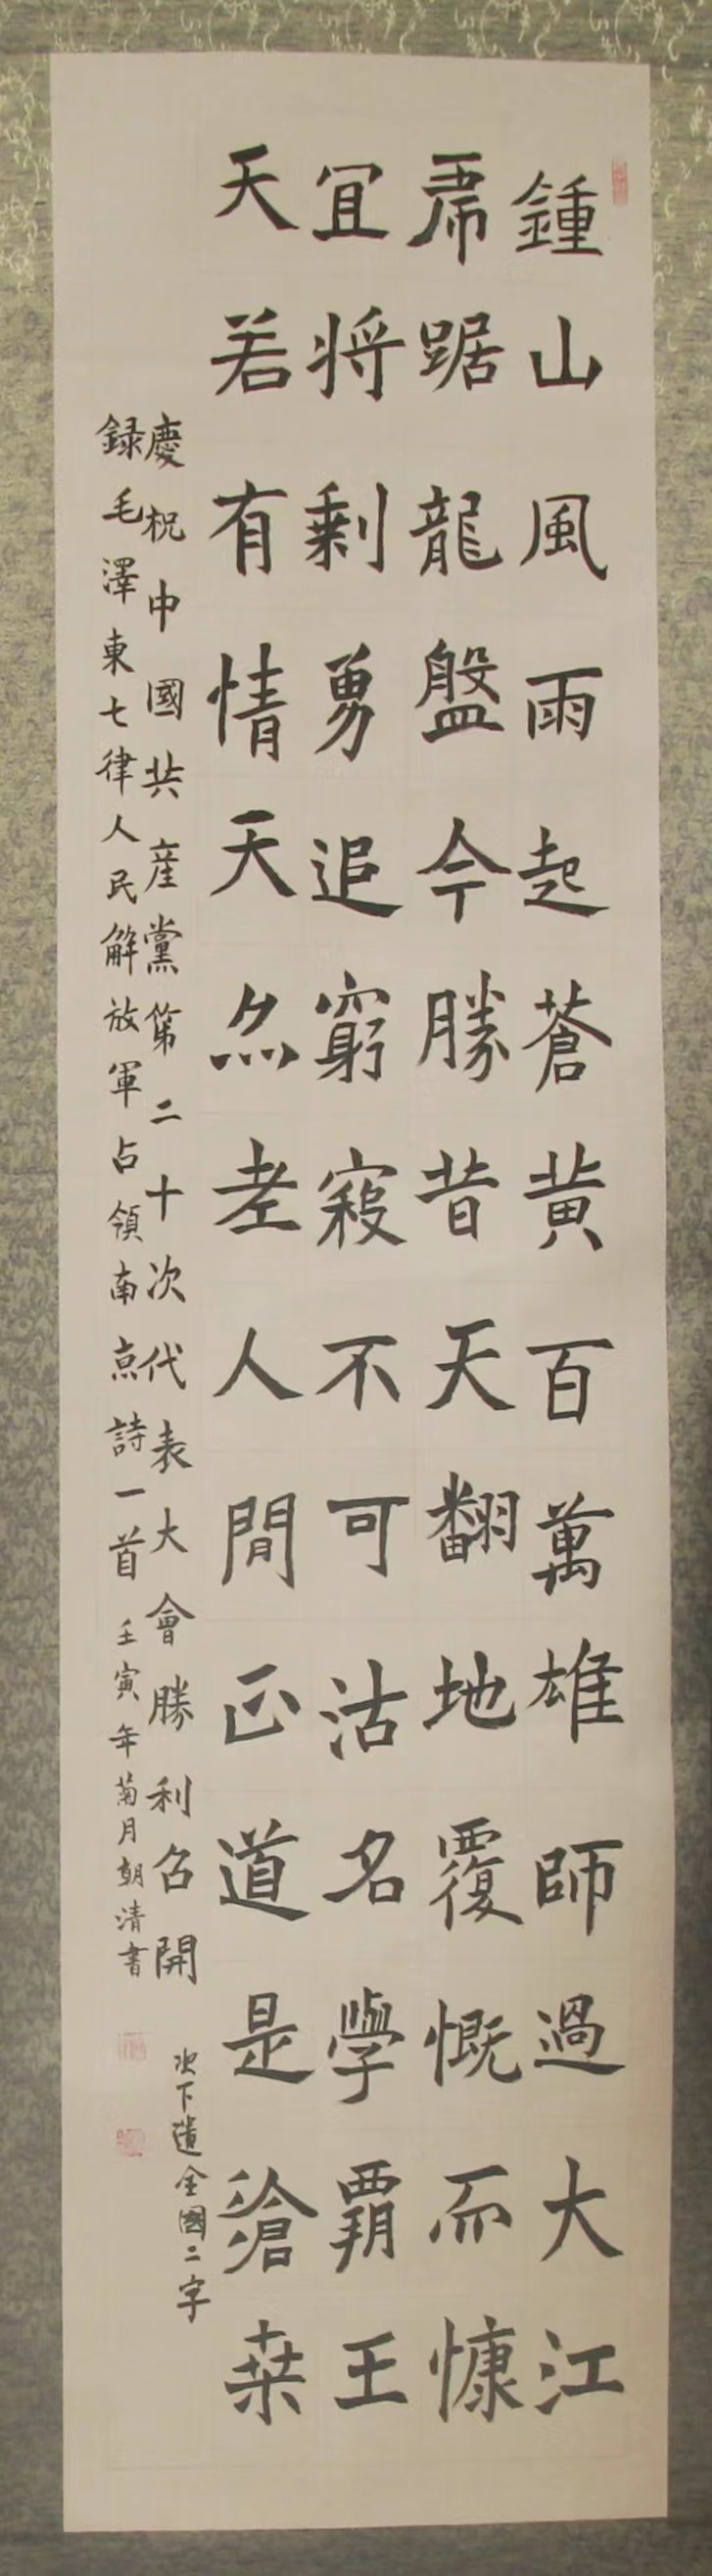 鍾山風雨起蒼黃百萬雄師過大江
虎踞龍盤今勝昔天翻地覆慨而慷
宜將剩勇追窮寇不可沽名學霸王
天若有情天亦老人間正道是滄桑
慶祝中國共産黨第二十次代表大會勝利召開
次下遺全國二字
録毛澤東七律人民解放軍占領南京詩一首 壬寅年菊月朝清書